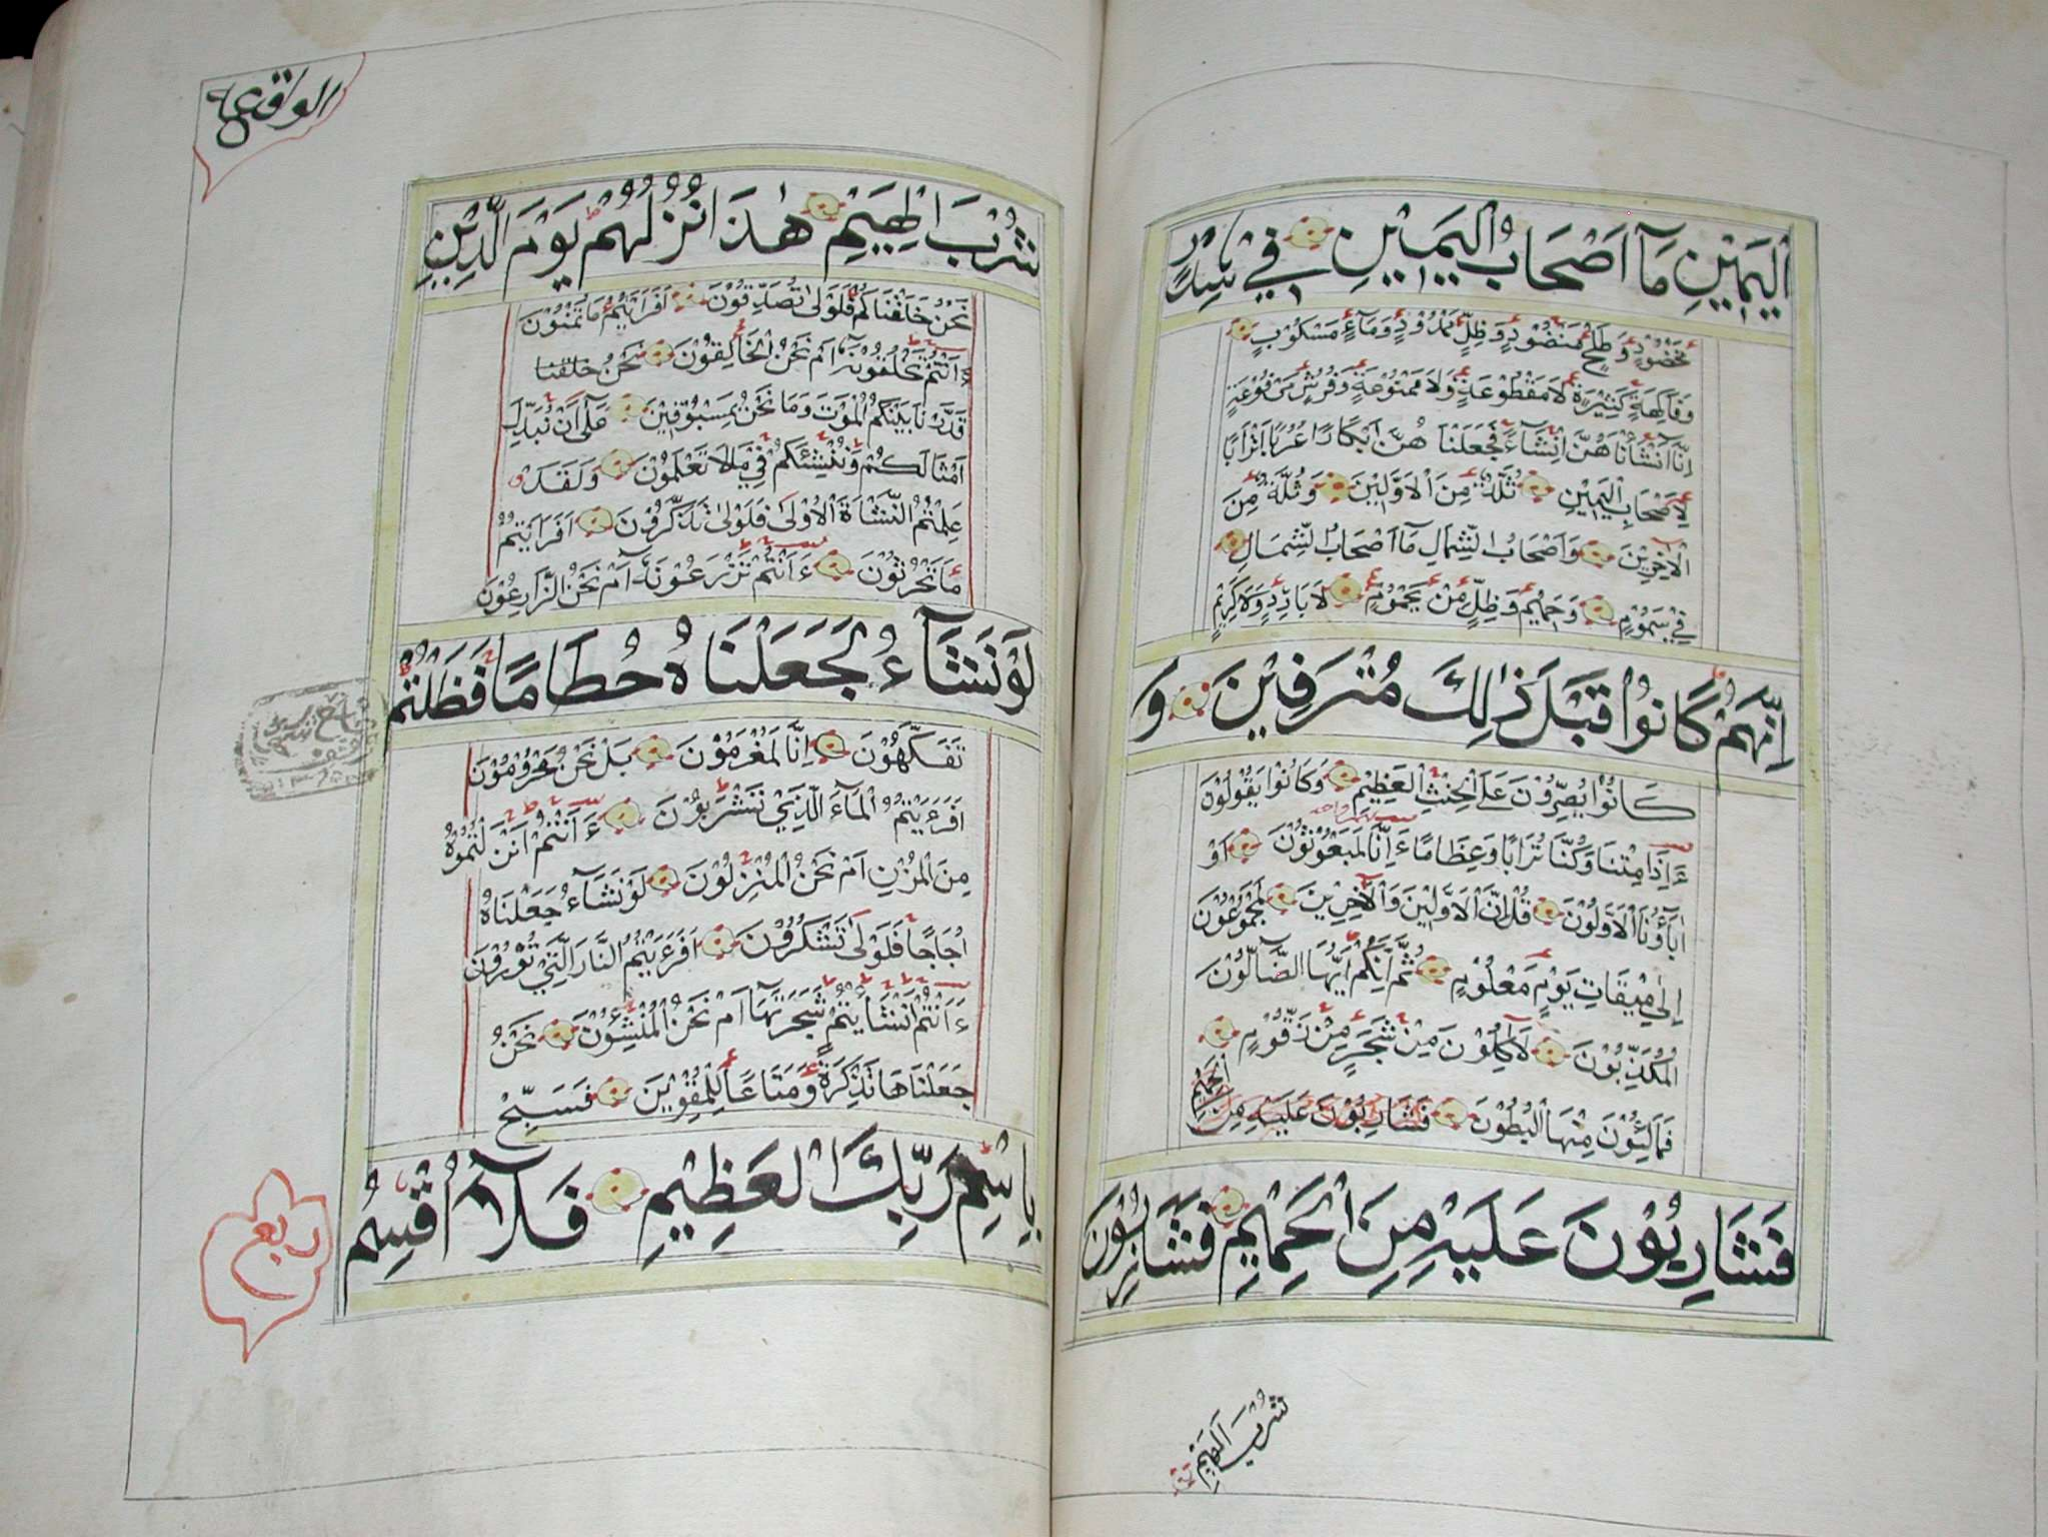 الْيَمِيْنِ مَآ اَصْحَابُ الْيَمِيْنِ فِيْ سِدْرٍ
مَّخْضُوْدٍ وَّ طَلْحٍ مَّنْضُوْدٍ وَّ ظِلٍّ مَّمْدُوْدٍ وَّ مَآءٍ مَّسْكُوْبٍ
وَّ فَاكِهَةٍ كَثِيْرَةٍ لَا مَقْطُوْعَةٍ وَّلَا مَمْنُوْعَةٍ وَّ فُرُشٍ مَّرْفُوْعَةٍ
اِنَّآ اَنْشَاْنَاهُنَّ اِنْشَآءً فَجَعَلْنَاهُنَّ اَبْكَارًا عُرُبًا اَتْرَابًا
لِاَصْحَابِ الْيَمِيْنِ ثُلَّةٌ مِنَ الْاَوَّلِيْنَ وَ ثُلَّةٌ مِنَ
الْاٰخِرِيْنَ وَاَصْحَابُ الشِّمَالِ مَآ اَصْحَابُ الشِّمَالِ
فِيْ سَمُوْمٍ وَّ حَمِيْمٍ وَّ ظِلٍّ مِنْ يَحْمُوْمٍ لَا بَارِدٍ وَّلَا كَرِيْمٍ
اِنَّهُمْ كَانُوْا قَبْلَ ذٰلِكَ مُتْرَفِيْنَ وَ
كَانُوْا يُصِرُّوْنَ عَلَى الْحِنْثِ الْعَظِيْمِ وَكَانُوْا يَقُوْلُوْنَ
ءَاِذَا مِتْنَا وَكُنَّا تُرَابًا وَّ عِظَامًا ءَاِنَّا لَمَبْعُوْثُوْنَ اَوَ
اٰبَآؤُنَا الْاَوَّلُوْنَ قُلْ اِنَّ الْاَوَّلِيْنَ وَالْاٰخِرِيْنَ لَمَجْمُوْعُوْنَ
اِلٰى مِيْقَاتِ يَوْمٍ مَّعْلُوْمٍ ثُمَّ اِنَّكُمْ اَيُّهَا الضَّالُّوْنَ
الْمُكَذِّبُوْنَ لَاٰكِلُوْنَ مِنْ شَجَرٍ مِنْ زَقُّوْمٍ
فَمَالِئُوْنَ مِنْهَا الْبُطُوْنَ فَشَارِبُوْنَ عَلَيْهِ مِنَ الْحَمِيْمِ
فَشَارِبُوْنَ عَلَيْهِ مِنَ الْحَمِيْمِ فَشَارِبُوْنَ
شُرْبَ الْهِيْمِ
الواقعة
شُرْبَ الْهِيْمِ هٰذَا نُزُلُهُمْ يَوْمَ الدِّيْنِ
نَحْنُ خَلَقْنَاكُمْ فَلَوْلَا تُصَدِّقُوْنَ اَفَرَاَيْتُمْ مَا تُمْنُوْنَ
ءَاَنْتُمْ تَخْلُقُوْنَهٗ اَمْ نَحْنُ الْخَالِقُوْنَ نَحْنُ خلقنا
قَدَّرْنَا بَيْنَكُمُ الْمَوْتَ وَمَا نَحْنُ بِمَسْبُوْقِيْنَ عَلٰى اَنْ نُبَدِّلَ
اَمْثَالَكُمْ وَنُنْشِئَكُمْ فِيْ مَا لَا تَعْلَمُوْنَ وَلَقَدْ
عَلِمْتُمُ النَّشْاَةَ الْاُوْلٰى فَلَوْلَا تَذَكَّرُوْنَ اَفَرَاَيْتُمْ
مَا تَحْرُثُوْنَ ءَاَنْتُمْ تَزْرَعُوْنَهٗ اَمْ نَحْنُ الزَّارِعُوْنَ
لَوْ نَشَآءُ لَجَعَلْنَاهُ حُطَامًا فَظَلْتُمْ
تَفَكَّهُوْنَ اِنَّا لَمُغْرَمُوْنَ بَلْ نَحْنُ مَحْرُوْمُوْنَ
اَفَرَءَيْتُمُ الْمَآءَ الَّذِيْ تَشْرَبُوْنَ ءَاَنْتُمْ اَنْزَلْتُمُوْهُ
مِنَ الْمُزْنِ اَمْ نَحْنُ الْمُنْزِلُوْنَ لَوْ نَشَآءُ جَعَلْنَاهُ
اُجَاجًا فَلَوْلَا تَشْكُرُوْنَ اَفَرَءَيْتُمُ النَّارَ الَّتِيْ تُوْرُوْنَ
ءَاَنْتُمْ اَنْشَاْتُمْ شَجَرَتَهَا اَمْ نَحْنُ الْمُنْشِئُوْنَ نَحْنُ
جَعَلْنَاهَا تَذْكِرَةً وَّ مَتَاعًا لِلْمُقْوِيْنَ فَسَبِّحْ
بِاسْمِ رَبِّكَ الْعَظِيْمِ فَلَآ اُقْسِمُ
ربع